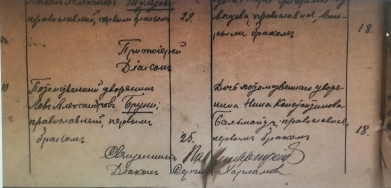 православный, первым браком
28.
православная, вто-
рымъ бракомъ
18.
Протоіерей
Діаконъ
10
Потомственный дворянинъ
Левъ Александровъ Бруни,
православный, первымъ
бракомъ
25.
Дочь потомственнаго дворя-
нина Нина Константинова
Бальмонтъ, православная,
первымъ бракомъ
18.
Священникъ
Діаконъ Сергій